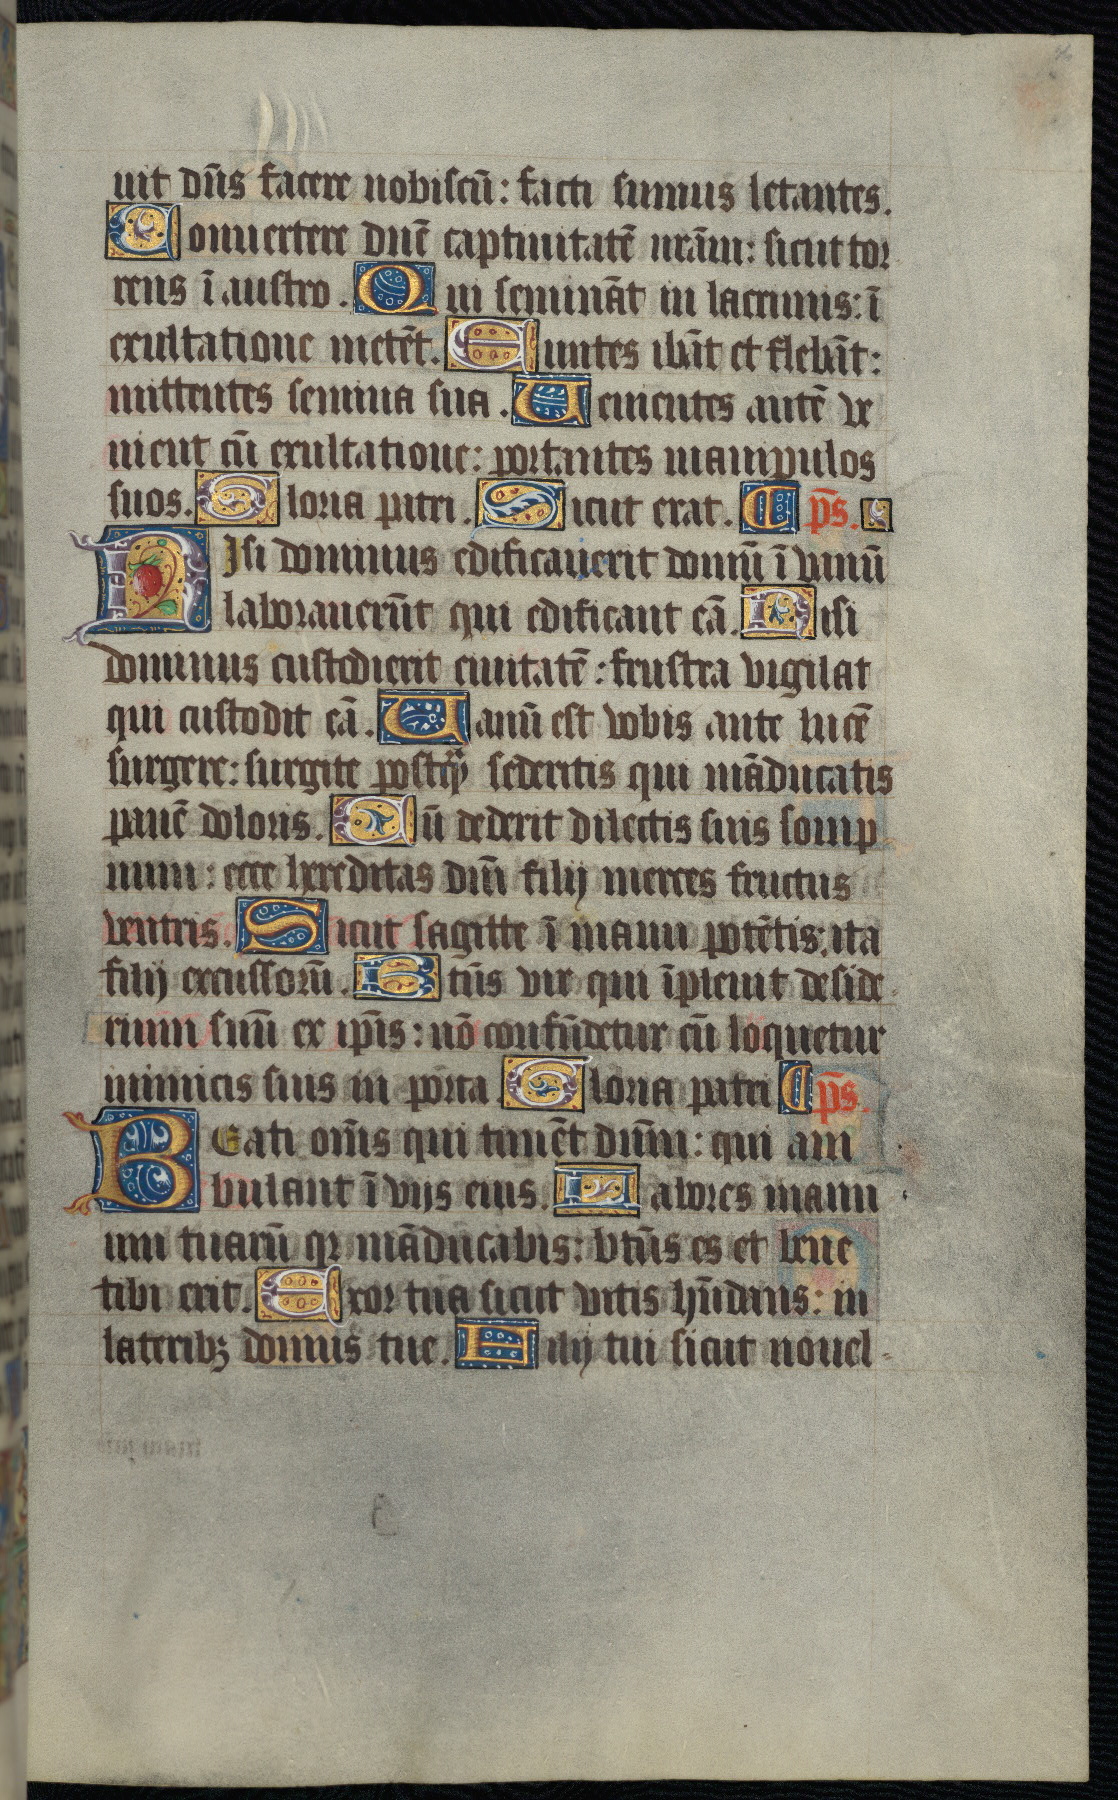 uit dn̄s facere nobiscū: facti sumus letantes.
Conuertere dn̄e captiuitatē nr̄am: sicut tor
rens ī austro. Qui semināt in lacrimis: ī
exultatione metēt. Euntes ibāt et flebāt:
mittentes semina sua. Uenientes autē ve
nient cū exultatione: portantes manipulos
suos. Gloria patri. Sicut erat. ps̄.
NIsi dominus edificauerit domū ī vanū
laborauerūt qui edificant eā. Nisi
dominus custodierit ciuitatē: frustra vigilat
qui custodit eā. Uanū est vobis ante lucē
surgere: surgite postq̄ꝫ sederitis qui māducatis
panē doloris. Cū dederit dilectis suis somp
num: ecce hereditas dn̄i filij merces fructus
ventris. Sicut sagitte ī manu potētis: ita
filij excussorū. Btūs vir qui īpleuit deside
rium suū ex ip̄is: nō confūdetur cū loquetur
inimicis suis in porta Gloria patri ps̄.
BEati om̄s qui timēt dn̄m: qui am
bulant ī vijs eius. Labores manu
um tuarū qr māducabis: btūs es et bene
tibi erit. Uxor tua sicut vitis hūdans: in
lateribꝫ domus tue. Filij tui sicut nouel